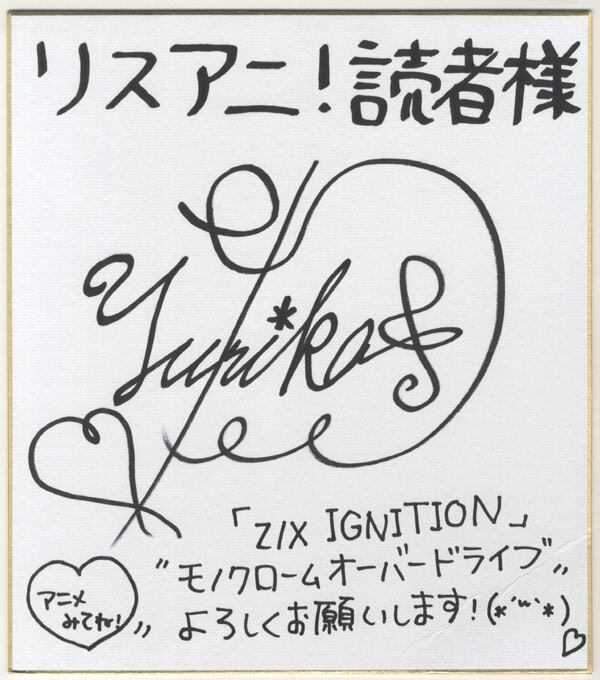 リスアニ！読者様
Yurika
「Z/X IGNITION」
"モノクロームオーバードライブ"
よろしくお願いします！(*´ω`*)
アニメ
みてね！